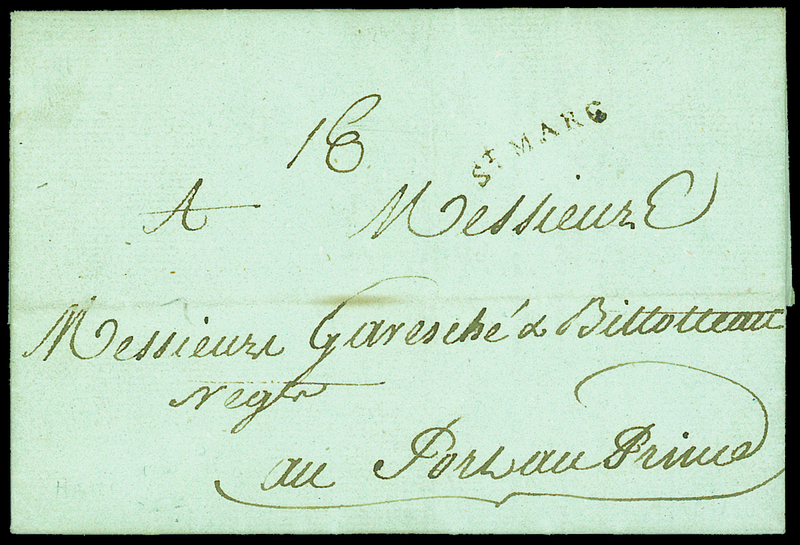 16
St MARC
A Messieurs
Messieurs Garesché & Billotteau
Negts
au Port au Prince